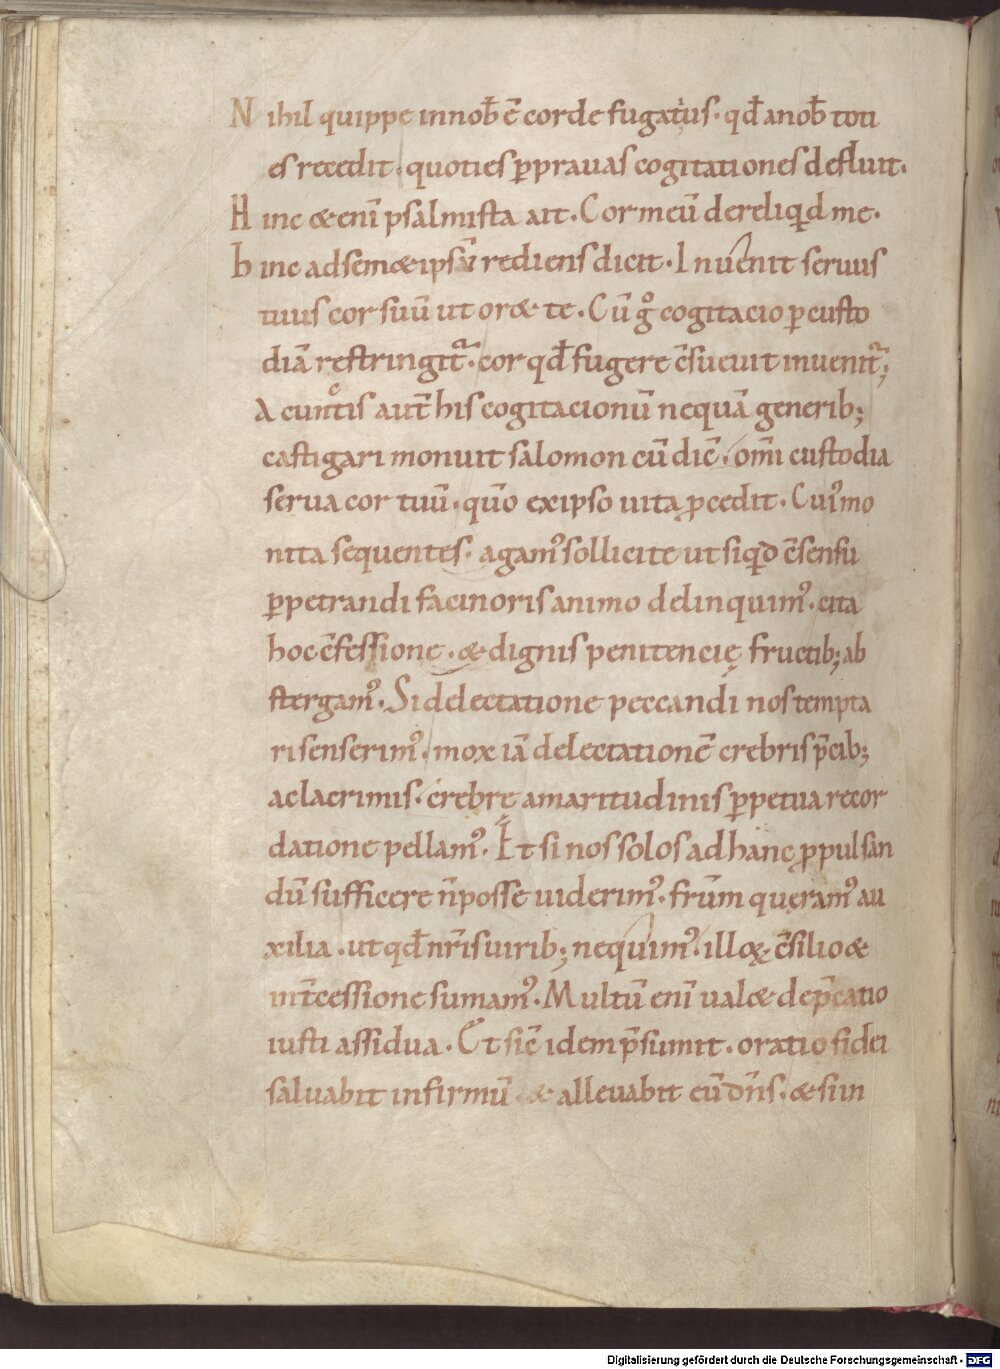 Nihil quippe in nob̄ ē corde fugatius· qd̄ a nob̄ toti
es recedit· quoties ꝑ prauas cogitationes defluit·
Hinc & eni᷑ psalmista ait· Cor meū dereliqͥd me·
hinc ad sem&ipsū rediens dicit· Inuenit seruus
tuus cor suū ut or& te· Cū gͦ cogitacio ꝑ custo
diā restringit᷑· cor qd̄ fugere c̄sueuit inuenit᷑;
A cunctis aut̄ his cogitacionū nequā generib;
castigari monuit salomon cū dic̄· om̄i custodia
serua cor tuū· qm̄o ex ipso uita ꝓcedit· Cuiꝰ mo
nita sequentes· agamꝰ sollicite ut siqͥd c̄sensu
ꝑpetrandi facinoris animo delinquimꝰ· cita
hoc c̄fessione· & dignis penitencię fructib; ab
stergamꝰ· Si delectatione peccandi nos tempta
ri senserimꝰ· mox iā delectationē crebris p̄cib;
ac lacrimis· crebre amaritudinis ꝑpetua recor
datione pellamꝰ· Et si nos solos ad hanc ꝓpulsan
dū sufficere n̄ posse uiderimꝰ· fr̄um queramꝰ au
xilia· ut qd̄ nr̄is uirib; nequimꝰ· illoꝝ c̄silio &
int̄cessione sumamꝰ· Multū eni᷑ ual& dep̄catio
iusti assidua· Et sic̄ idem p̄sumit· oratio fidei
saluabit infirmū· & alleuabit eū dn̄s· & si in
Digitalisierung gefördert durch die Deutsche Forschungsgemeinschaft - DFG